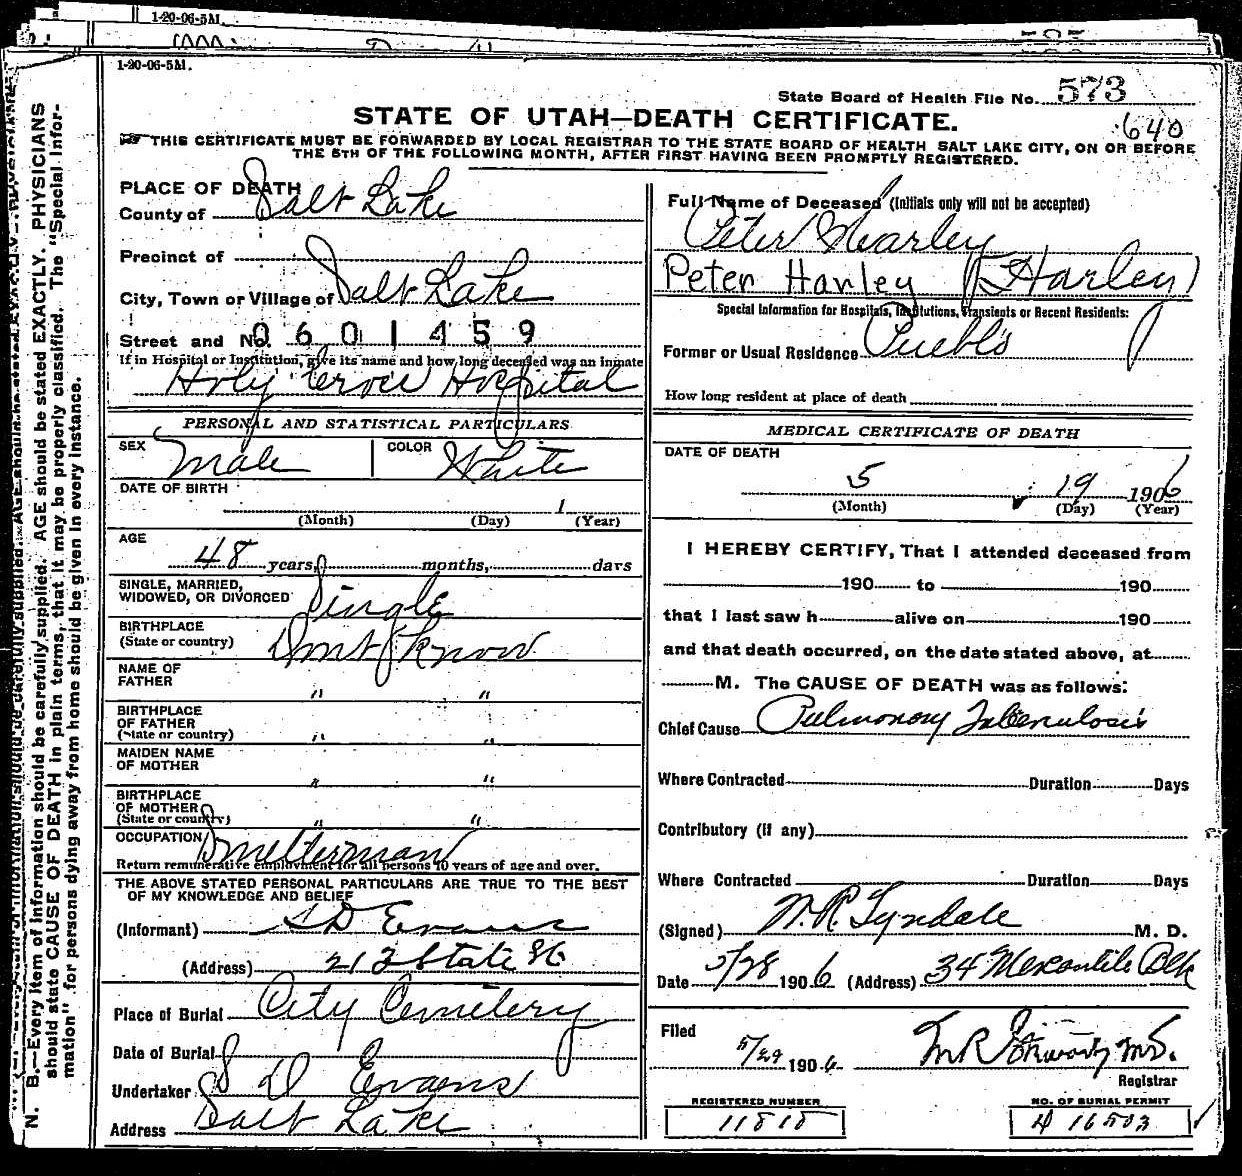 1-20-06-5M.
1-20-06-5M.
State Board of Health File No. 573
STATE OF UTAH—DEATH CERTIFICATE.
640
THIS CERTIFICATE MUST BE FORWARDED BY LOCAL REGISTRAR TO THE STATE BOARD OF HEALTH SALT LAKE CITY, ON OR BEFORE
THE 5TH OF THE FOLLOWING MONTH, AFTER FIRST HAVING BEEN PROMPTLY REGISTERED.
N. B.—Every item of information should be carefully supplied. AGE should be stated EXACTLY. PHYSICIANS
should state CAUSE OF DEATH in plain terms, that it may be properly classified. The "Special Infor-
mation" for persons dying away from home should be given in every instance.
PLACE OF DEATH
County of Salt Lake
Precinct of
City, Town or Village of Salt Lake
Street and No. 0601459
If in Hospital or Institution, give its name and how long deceased was an inmate
Holy Cross Hospital
PERSONAL AND STATISTICAL PARTICULARS
SEX Male COLOR White
DATE OF BIRTH
1
(Month) (Day) (Year)
AGE
48 years, months, days
SINGLE, MARRIED,
WIDOWED, OR DIVORCED Single
BIRTHPLACE
(State or country) Dont know
NAME OF
FATHER " "
BIRTHPLACE
OF FATHER
(State or country) " "
MAIDEN NAME
OF MOTHER " "
BIRTHPLACE
OF MOTHER
(State or country) " "
OCCUPATION Smelterman
Return remunerative employment for all persons 10 years of age and over.
THE ABOVE STATED PERSONAL PARTICULARS ARE TRUE TO THE BEST
OF MY KNOWLEDGE AND BELIEF
(Informant) S D Evans
(Address) 213 State St
Place of Burial City Cemetery
Date of Burial
Undertaker S D Evans
Address Salt Lake
Full Name of Deceased (Initials only will not be accepted)
Peter Harley
Peter Hanley (Harley)
Special Information for Hospitals, Institutions, Transients or Recent Residents:
Former or Usual Residence Pueblo
How long resident at place of death
MEDICAL CERTIFICATE OF DEATH
DATE OF DEATH
5 19 1906
(Month) (Day) (Year)
I HEREBY CERTIFY, That I attended deceased from
190 to 190
that I last saw h alive on 190
and that death occurred, on the date stated above, at
M. The CAUSE OF DEATH was as follows:
Chief Cause Pulmonary Tuberculosis
Where Contracted Duration Days
Contributory (if any)
Where Contracted Duration Days
(Signed) N. R. Tyndale M. D.
Date 5/28 1906 (Address) 34 Mercantile Blk
Filed
5/29 1906
Registrar
REGISTERED NUMBER
11818
NO. OF BURIAL PERMIT
A 16503